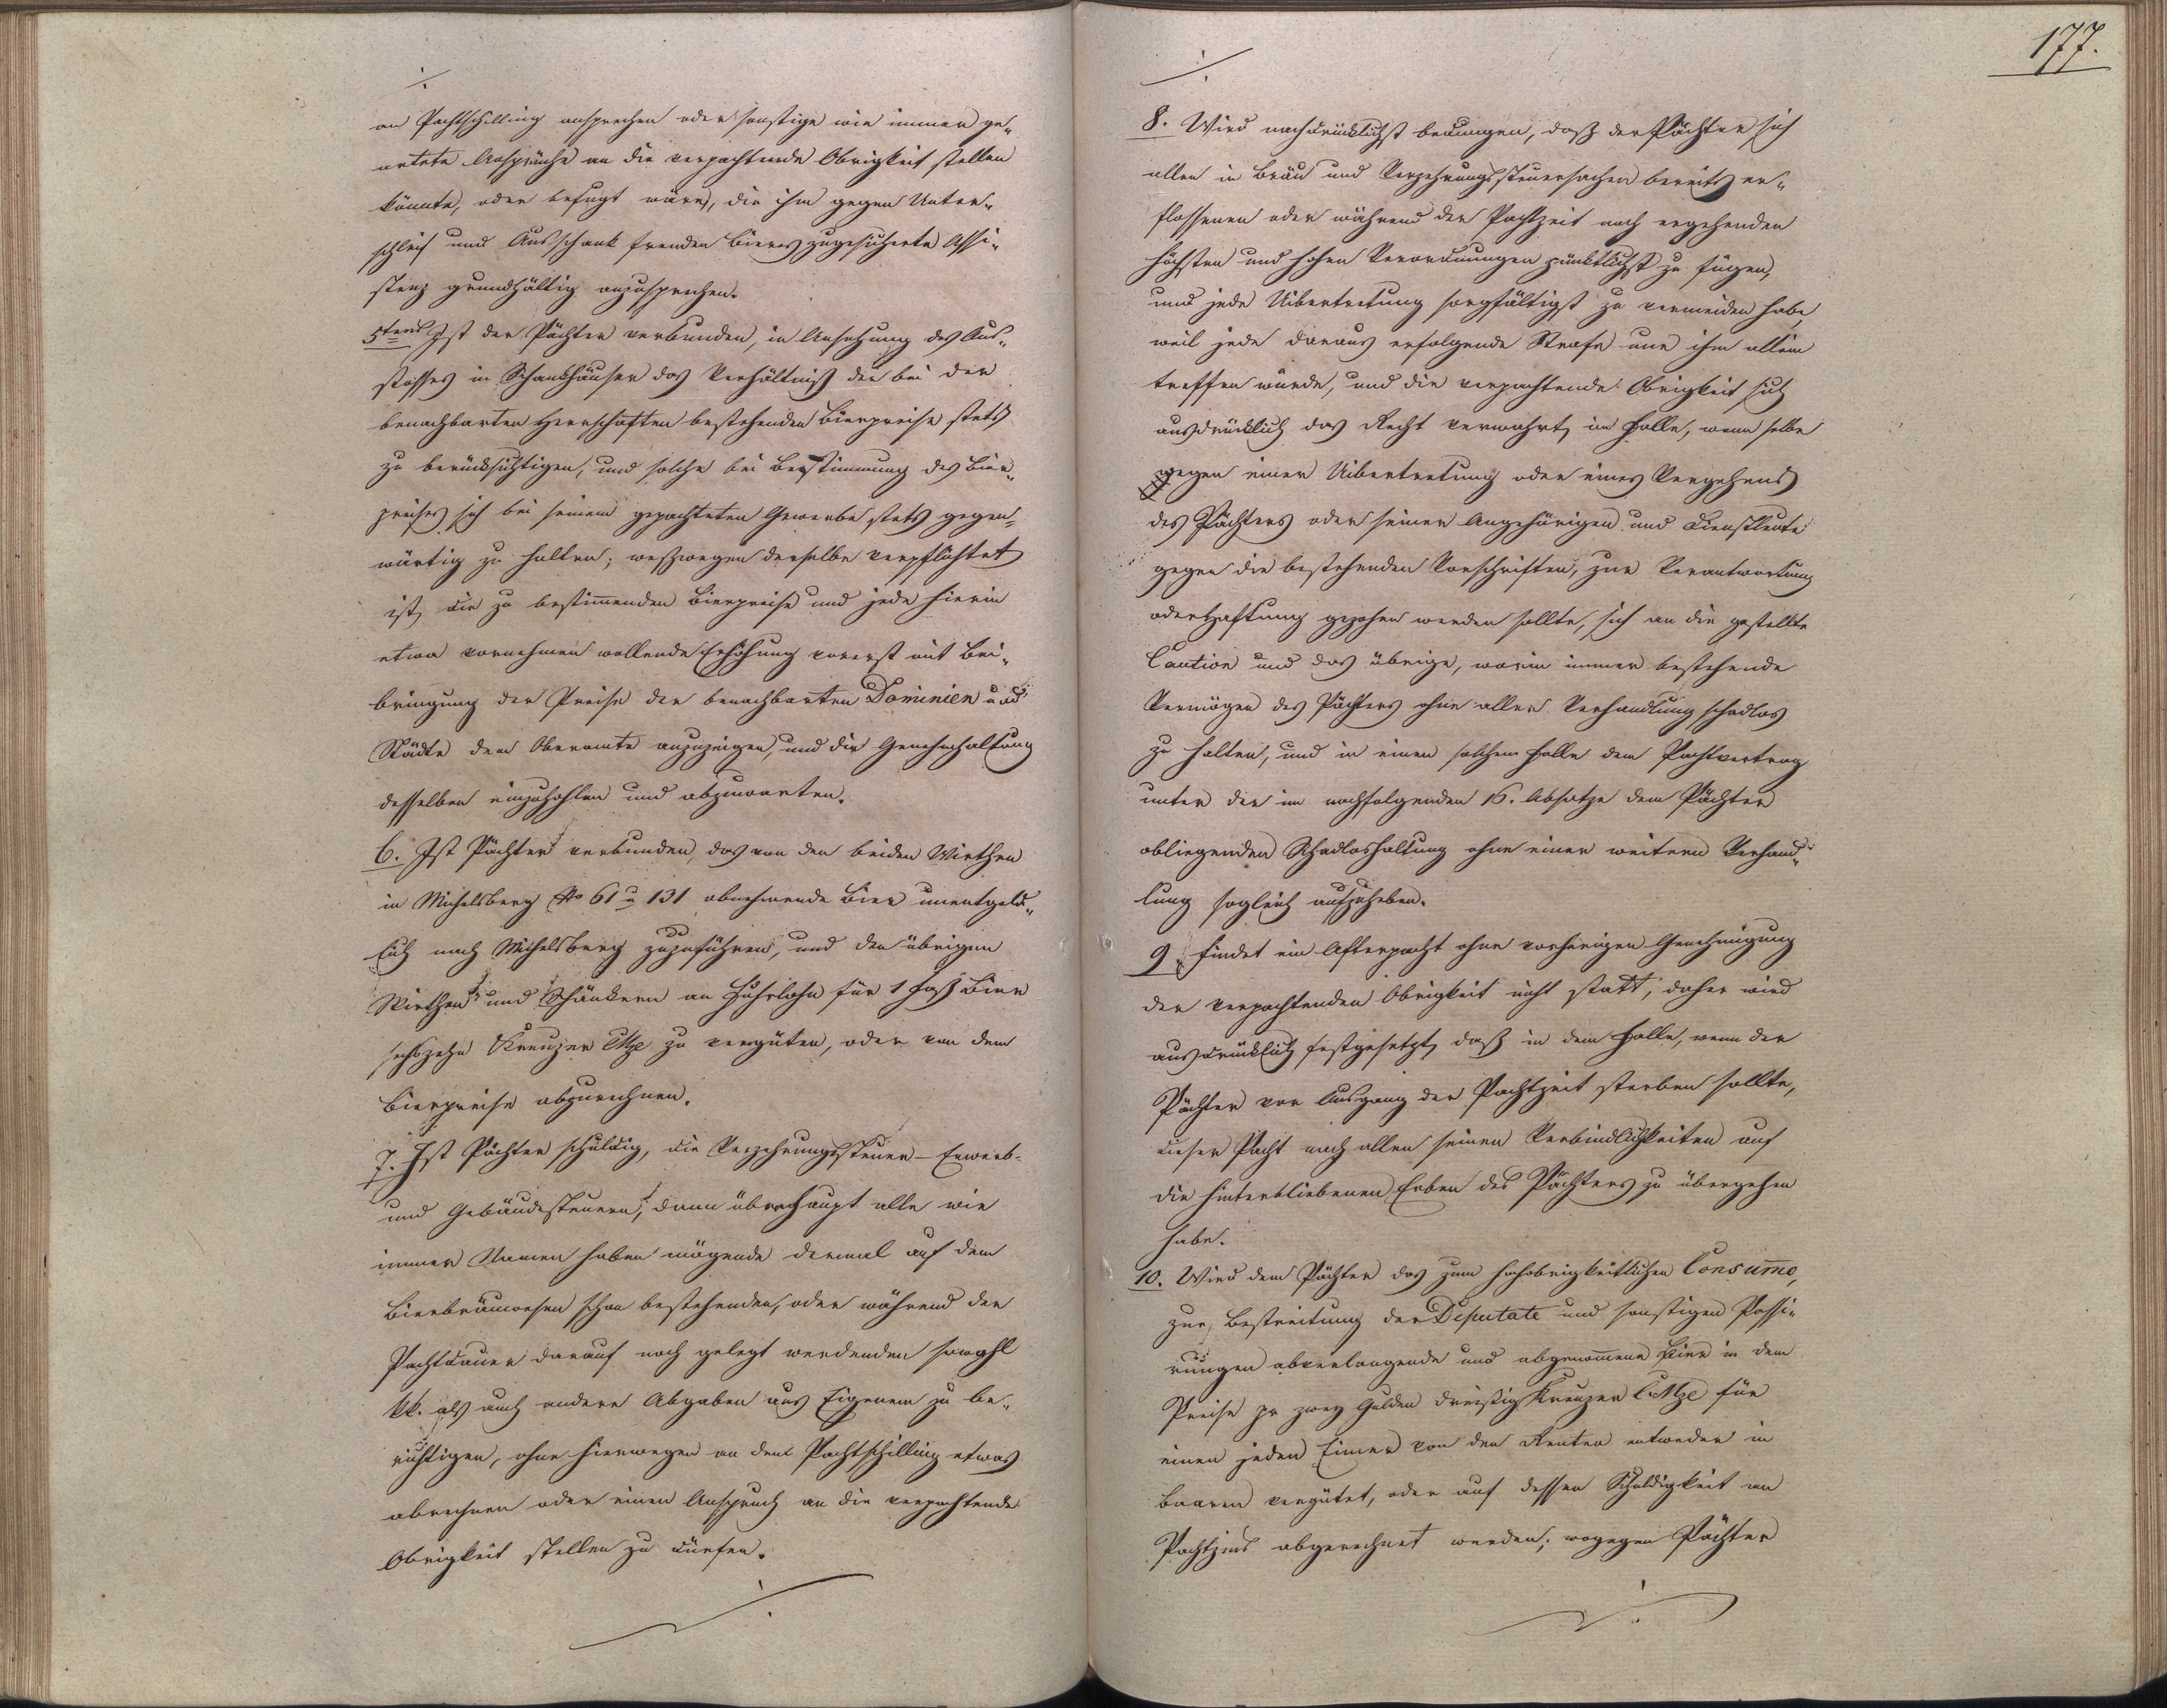 ./.
an Pachtschilling ansprechen oder sonstige wie immer ge„
artete Ansprüche an die verpachtende Obrigkeit stellen
könnte, oder befugt wäre, die ihm gegen Unter„
schleif und Ausschank fremden Bieres zugesicherte Assi„
stenz grundhältig anzusprechen.
5tens Ist der Pächter verbunden, in Ansehung des Aus„
stosses in Schankhäuser das Verhältniß der bei den
benachbarten Herrschaften bestehenden Bierpreise stets
zu berücksichtigen, und solche bei Bestimmung des Bier„
preises sich bei seinem gepachteten Gewerbe stets gegen„
wärtig zu halten; weßwegen derselbe verpflichtet
ist, die zu bestimmenden Bierpreise und jede hierin
etwa vornehmen wollende Erhöhung vorerst mit Bei„
bringung der Preise der benachbarten Dominien und
Städte dem Oberamte anzuzeigen, und die Genehmhaltung
desselben einzuhohlen und abzuwarten.
6. Ist Pächter verbunden, das von den beiden Wirthen
in Michelsberg No 61 u 131 abnehmende Bier unentgeld„
lich nach Michelsberg zuzuführen, und den übrigen
Wirthen und Schänkern an Fuhrlohn für 1 Faß Bier
sechszehn Kreuzer CMze zu vergüten, oder von dem
Bierpreise abzurechnen.
7. Ist Pächter schuldig, die Verzehrungssteuer – Erwerb-
und Gebäudesteuern, dann überhaupt alle wie
immer Namen haben mögende dermal auf dem
Bierbräuwesen schon bestehenden, oder während der
Pachtdauer darauf noch gelegt werdenden sowohl
kk. als auch andere Abgaben aus Eigenem zu be„
richtigen, ohne hierwegen an dem Pachtschilling etwas
abrechnen oder einen Anspruch an die verpachtende
Obrigkeit stellen zu dürfen.
./.
177.
./.
8. Wird nachdrücklichst bedungen, daß der Pächter sich
allen in Bräu und Verzehrungssteuersachen bereits er„
flossenen oder während der Pachtzeit noch ergehenden
höchsten und hohen Verordnungen pünktlichst zu fügen,
und jede Uibertretung sorgfältigst zu vermeiden habe,
weil jede daraus erfolgende Strafe nur ihn allein
treffen würde, und die verpachtende Obrigkeit sich
ausdrücklich das Recht verwahrt, im Falle, wenn selbe
wegen einer Uibertretung oder eines Vergehens
des Pächters oder seiner Angehörigen und Dienstleute
gegen die bestehenden Vorschriften, zur Verantwortung
oder Haftung gezohen werden sollte, sich an die gestellte
Caution und das übrige, worin immer bestehende
Vermögen des Pächters ohne aller Verhandlung schadlos
zu halten, und in einem solchem Falle den Pachtvertrag
unter der im nachfolgenden 16. Absatze dem Pächter
obliegenden Schadloshaltung ohne einer weitern Verhand„
lung sogleich aufzuheben.
9. Findet ein Afterpacht ohne vorherigen Genehmigung
der verpachtenden Obrigkeit nicht statt; daher wird
ausdrücklich festgesetzt, daß in dem Falle, wenn der
Pächter vor Ausgang der Pachtzeit sterben sollte,
dieser Pacht nach allen seinen Verbindlichkeiten auf
die hinterbliebenen Erben des Pächters zu übergehen
habe.
10. Wird dem Pächter das zum hochobrigkeitlichen Consummo,
zur Bestreitung der Deputate und sonstigen Passi„
rungen abverlangende und abgenommene Bier in dem
Preise pr zwey Gulden dreißig Kreuzer CMze für
einen jeden Eimer von den Renten entweder in
Baarem vergütet, oder auf dessen Schuldigkeit am
Pachtzins abgerechnet werden; wogegen Pächter
./.